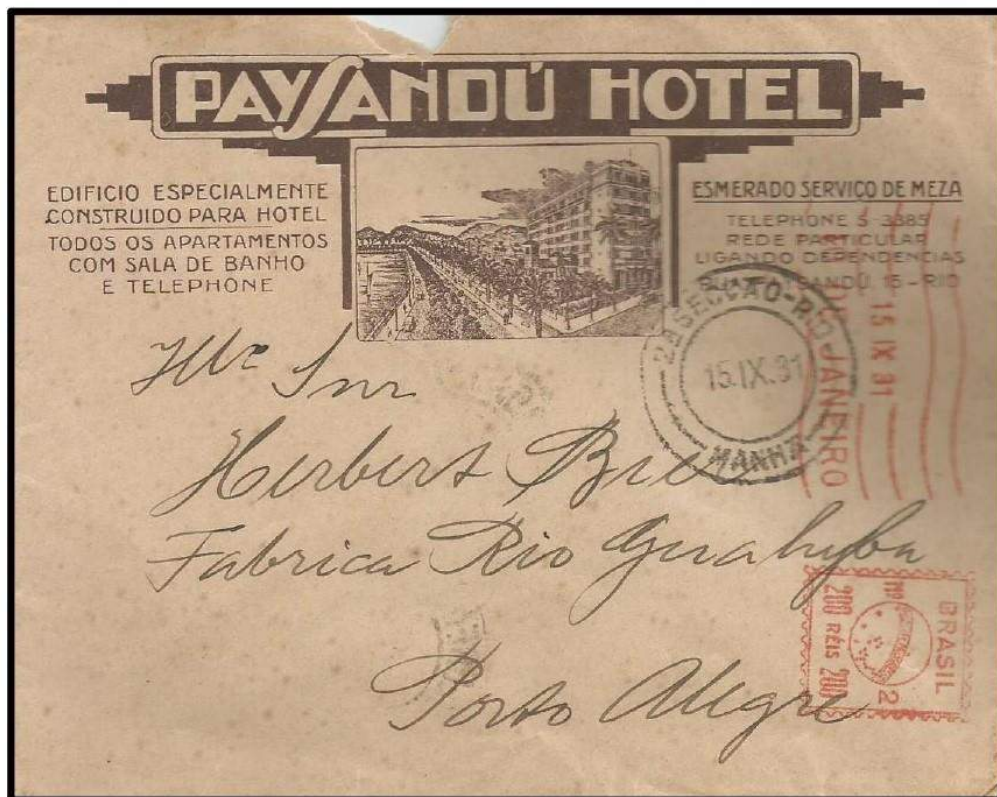 PAYSANDÚ HOTEL
EDIFICIO ESPECIALMENTE
CONSTRUIDO PARA HOTEL
TODOS OS APARTAMENTOS
COM SALA DE BANHO
E TELEPHONE
ESMERADO SERVIÇO DE MEZA
TELEPHONE 5-3385
REDE PARTICULAR
LIGANDO DEPENDENCIAS
RUA PAYSANDÚ, 15-RIO
SECÇÃO-RIO
15.IX.31
MANHÃ
RIO DE JANEIRO
15 IX 31
Snr
Herbert
Fabrica Rio Guahyba
Porto Alegre
BRASIL
2
Nº
200 RÉIS 200